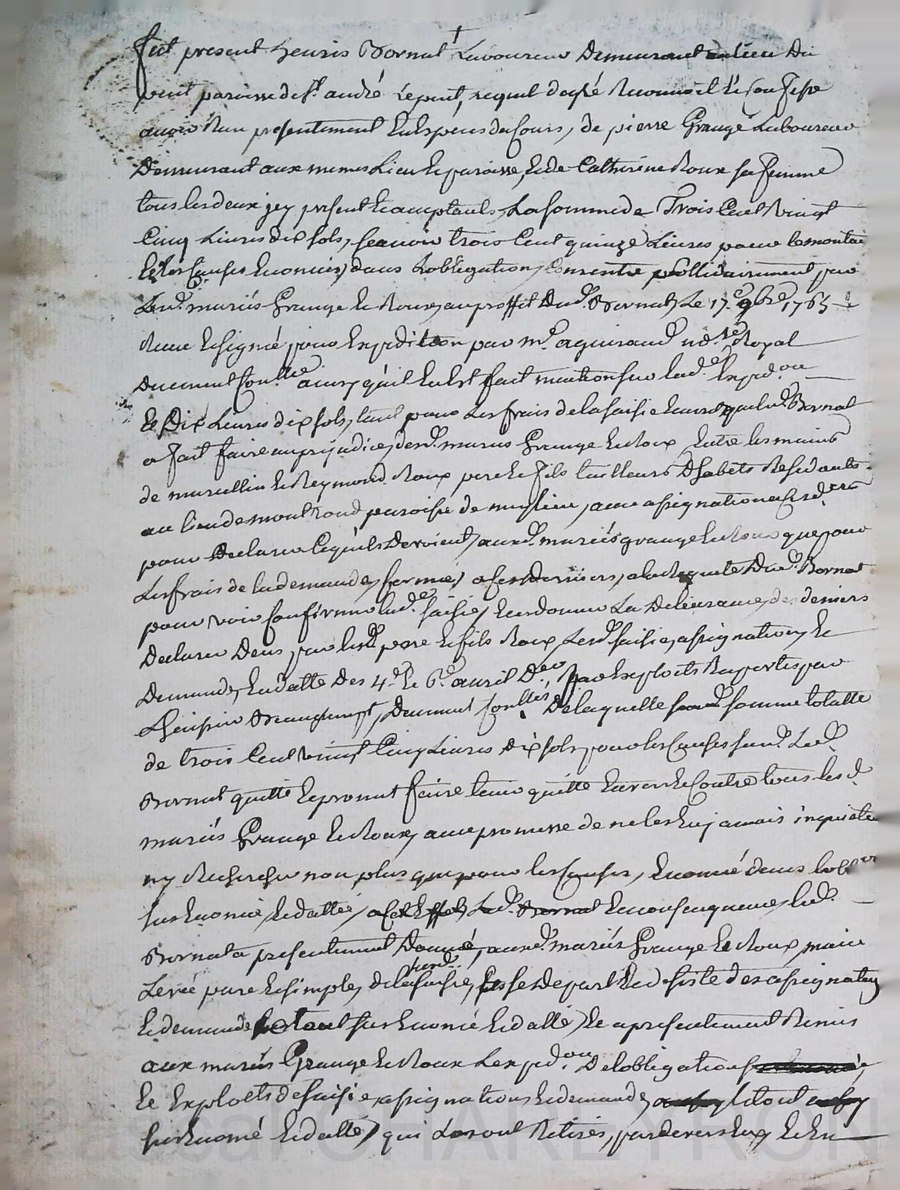 fut present henris Bornat Laboureur Demeurant au lieu Du
pont paroisse de St. andré Lepont, lequel de gré Reconnoit Et Confesse
avoir Reçu presentement En Especes du Cours, de pierre Grangé Laboureur
Demeurant aux memes Lieu Et paroisse, Et de Catherine Roux sa femme
tous les deux jcy present Et acceptants, La somme de Trois Cent vingt
Cinq Livres dix sols, scavoir trois Cent quinze Livres pour le montan
Et les Causes Enoncés, dans Lobligation, Consentie sollidairement par
Lesd. mariés Grange Et Roux, au proffit Dud. Bornat, Le 17.e 9bre 1763
Reçue Et signée pour Expedition par me. aguiraud nore. Royal
Duement Conllée ainsy qu'il En Est fait mention sur lad.e Expedon
Et Dix Livres dix sols, tant pour Les frais de la saisie Et arret que led. Bornat
a fait faire au prejudice, desd. mariés Grange Et Roux, Entre les mains
de marcellin Et Reymond Roux pere Et fils tailleurs Dhabits Residants
au lieu de mont Rond paroisse de , avec assignation
pour Declarer Ce quils Devoient, auxd. mariés grange Et Roux que pour
Les frais de la demande, formée, a Ces derniers, a la Requete Dud. Bornat
pour voir Confirmer lad.e saisie, Et ordonner La Delivrance, des deniers
Declarés Deus, par lesd. pere Et fils Roux, Lesd. saisie, assignation, Et
Demande, En datte Des 4.e Et 6.e avril Der, par Exploits Raportés par
Lhuissier , Deuement Conllés, De laquelle somme totalle
de trois Cent vingt Cinq Livres Dix sols, pour les Causes susd. Led.
Bornat quitte Et promet faire tenir quitte Envers Et Contre tous les d.
mariés Grange Et Roux, avec promesse de ne les En jamais inquieter
ny Rechercher non plus que pour les Causes, Enoncé dans lobbon
sus Enoncé, Et datté, Led. Bornat En Consequence, led.
Bornat a presentement Donné, auxd. mariés Grange Et Roux main
Levée pure Et simple, de la susd. saisie, se depart Et desiste des assignation
Et demande Le tout sus Enoncé Et datté, Et a presentement Remis
aux mariés Grange Et Roux Lexpedon De lobligation
Et Exploits de saisie, assignations Et demande, Le tout
sus Enoncé Et datté, qui Les ont Retirés, par devers Eux, Et En